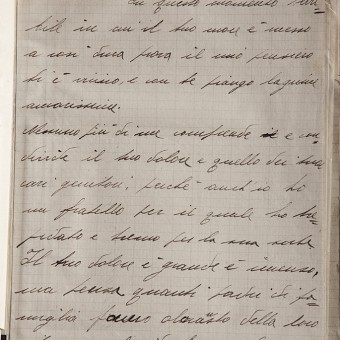 In questo momento terri-
bile in cui il tuo cuore è messo
a così dura prova il mio pensiero
ti è vicino, e con te piango lagrime
amarissime.
Nessuno, più di me comprende e con
divide il tuo dolore e quello dei tuoi
cari genitori, perchè anch'io ho
un fratello per il quale ho tre
pidato e tremo per la sua sorte
Il tuo dolore è grande è immenso,
ma pensa quanti padri di fa
miglia della loro